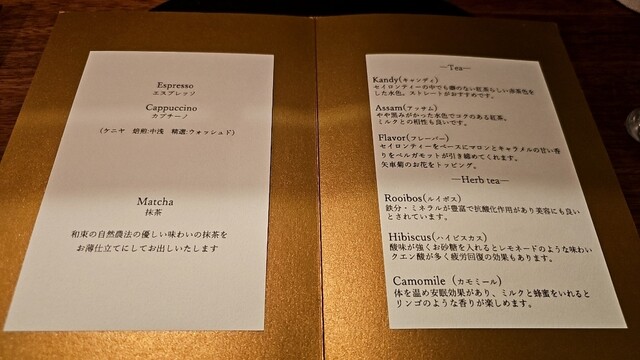 Espresso
エスプレッソ
Cappuccino
カプチーノ
(ケニヤ 焙煎:中浅 精選:ウォッシュド)
Matcha
抹茶
和束の自然農法の優しい味わいの抹茶を
お薄仕立てにしてお出しいたします
—Tea—
Kandy(キャンディ)
セイロンティーの中でも癖のない紅茶らしい赤茶色を
した水色。ストレートがおすすめです。
Assam(アッサム)
やや黒みがかった水色でコクのある紅茶。
ミルクとの相性も良いです。
Flavor(フレーバー)
セイロンティーをベースにマロンとキャラメルの甘い香
りをベルガモットが引き締めてくれます。
矢車菊のお花をトッピング。
—Herb tea—
Rooibos(ルイボス)
鉄分・ミネラルが豊富で抗酸化作用があり美容にも良い
とされています。
Hibiscus(ハイビスカス)
酸味が強くお砂糖を入れるとレモネードのような味わい
クエン酸が多く疲労回復の効果もあります。
Camomile (カモミール)
体を温め安眠効果があり、ミルクと蜂蜜をいれると
リンゴのような香りが楽しめます。